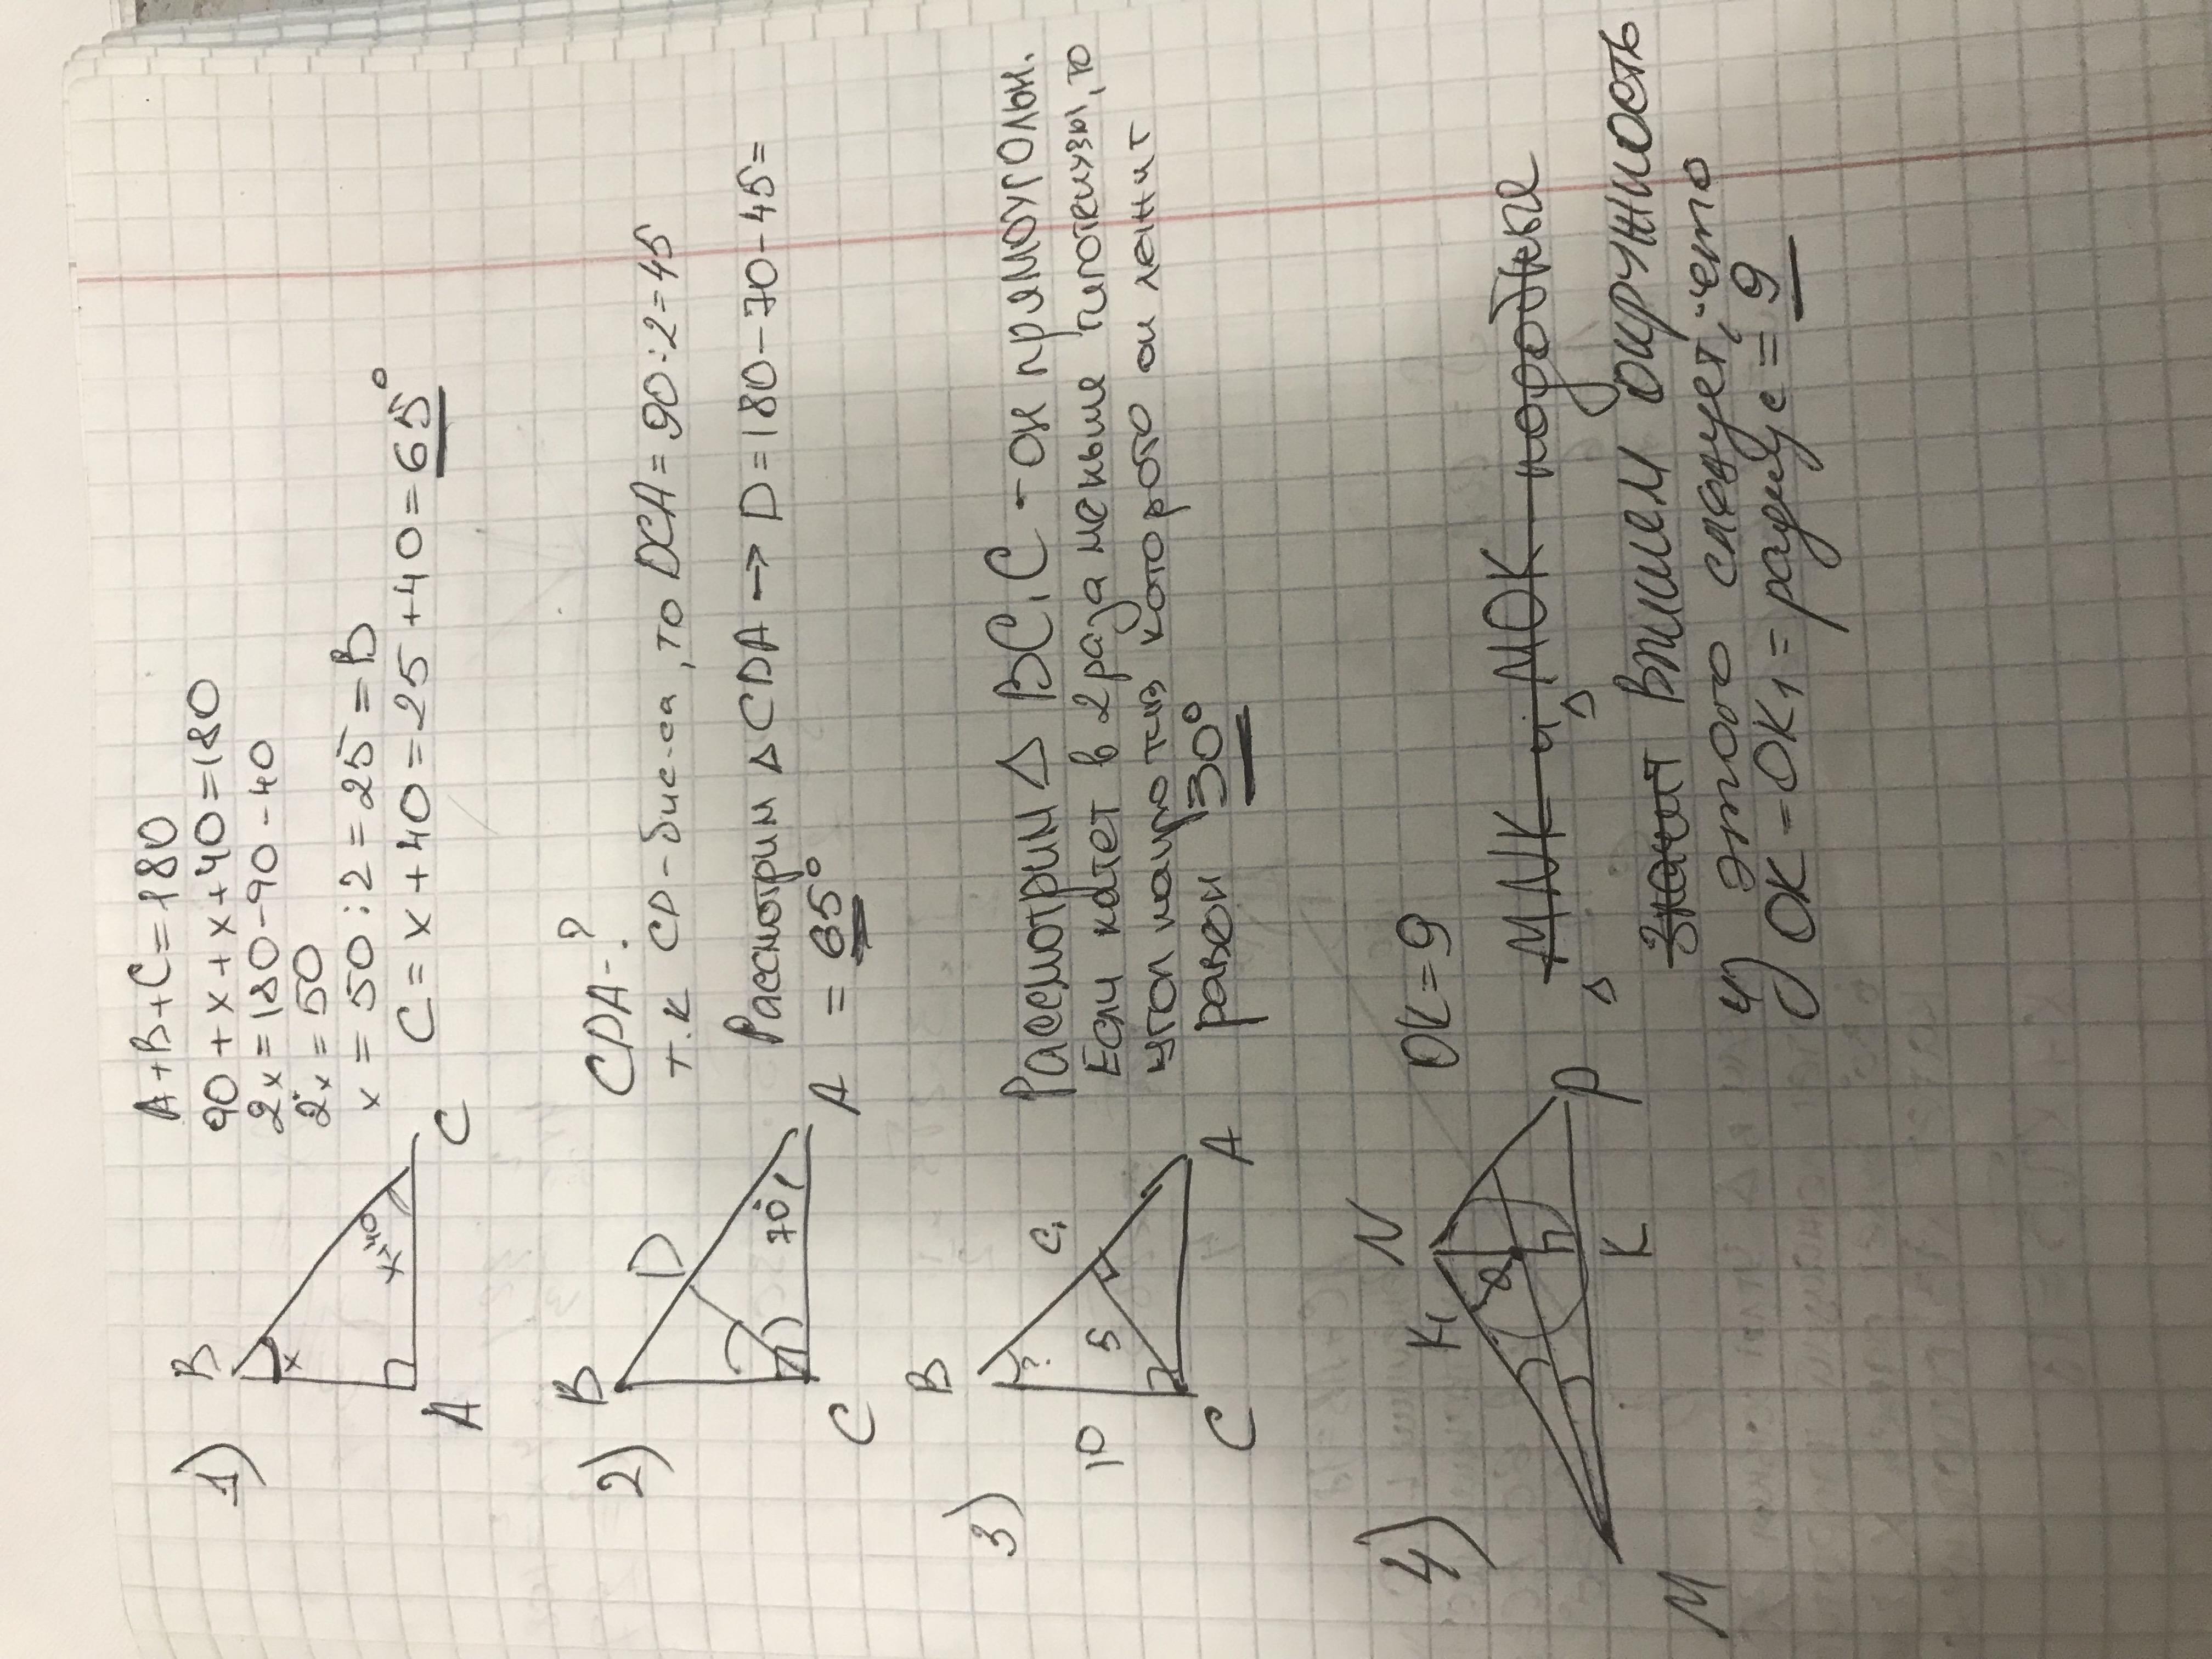 1)
B
x
x+40
A
C
A+B+C=180
90+x+x+40=180
2x=180-90-40
2x=50
x=50:2=25=B
C=x+40=25+40=65°
2)
B
D
70°
C
A
CDA-?
т.к CD-бис-са, то DCA=90:2=45
Рассмотрим △CDA→D=180-70-45=
=65°
3)
B
C₁
?
5
10
C
A
Расмотрим △BC₁C-он прямоугольн.
Если катет в 2 раза меньше гипотенузы, то
угол напротив которого он лежит
равен 30°
4)
N
K₁
M
K
P
OK=9
△MNK и △MOK подобные
Значит Впишем окружность
этого следует, что
OK=OK₁=радиус=9